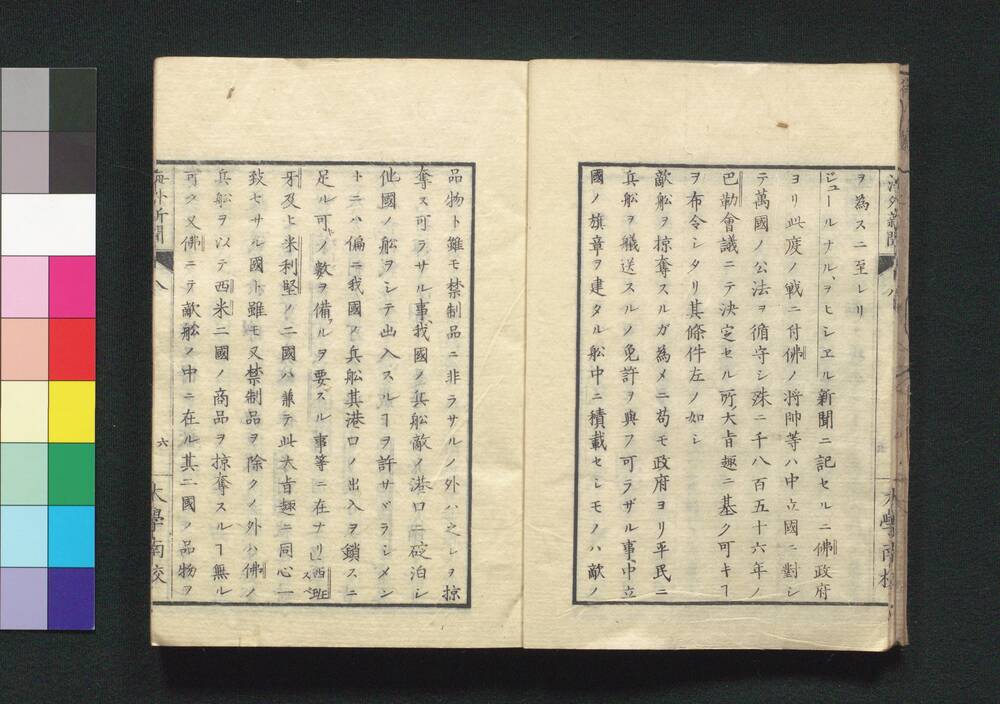 海外新聞
八
大學南校
ヲ為スニ至レリ
ジュールナル、ヲヒシエル新聞ニ記セルニ佛政府
ヨリ此度ノ戰ニ付佛ノ将帥等ハ中立國ニ對シ
テ萬國ノ公法ヲ循守シ殊ニ千八百五十六年ノ
巴勒會議ニテ決定セル所ノ大㫖趣ニ基ク可キヿ
ヲ布令シタリ其條件左ノ如シ
敵舩ヲ掠奪スルガ為メニ苟モ政府ヨリ平民ニ
兵舩ヲ艤送スルノ免許ヲ與フ可ラザル事、中立
國ノ旗章ヲ建タル舩中ニ積載セシモノハ敵ノ
品物ト雖モ禁制品ニ非ラサルノ外ハ之レヲ掠
奪ス可ラサル事、我國ノ兵舩敵ノ港口ニ碇泊シ
他國ノ舩ヲシテ出入スルヿヲ許サヾラシメン
トニハ偏ニ我國ノ兵舩其港口ノ出入ヲ鎖スニ
足ル可キノ數ヲ備ルヲ要スル事等ニ在ナリ西班
スペ
牙及ヒ米利堅ノ二國ハ兼テ此大㫖趣ニ同心一
致セサル國ト雖モ又禁制品ヲ除クノ外ハ佛ノ
兵舩ヲ以テ西米二國ノ商品ヲ掠奪スルヿ無ル
可ク又佛ニテ敵舩ノ中ニ在ル其二國ノ品物ヲ
海外新聞
八
六
大學南校